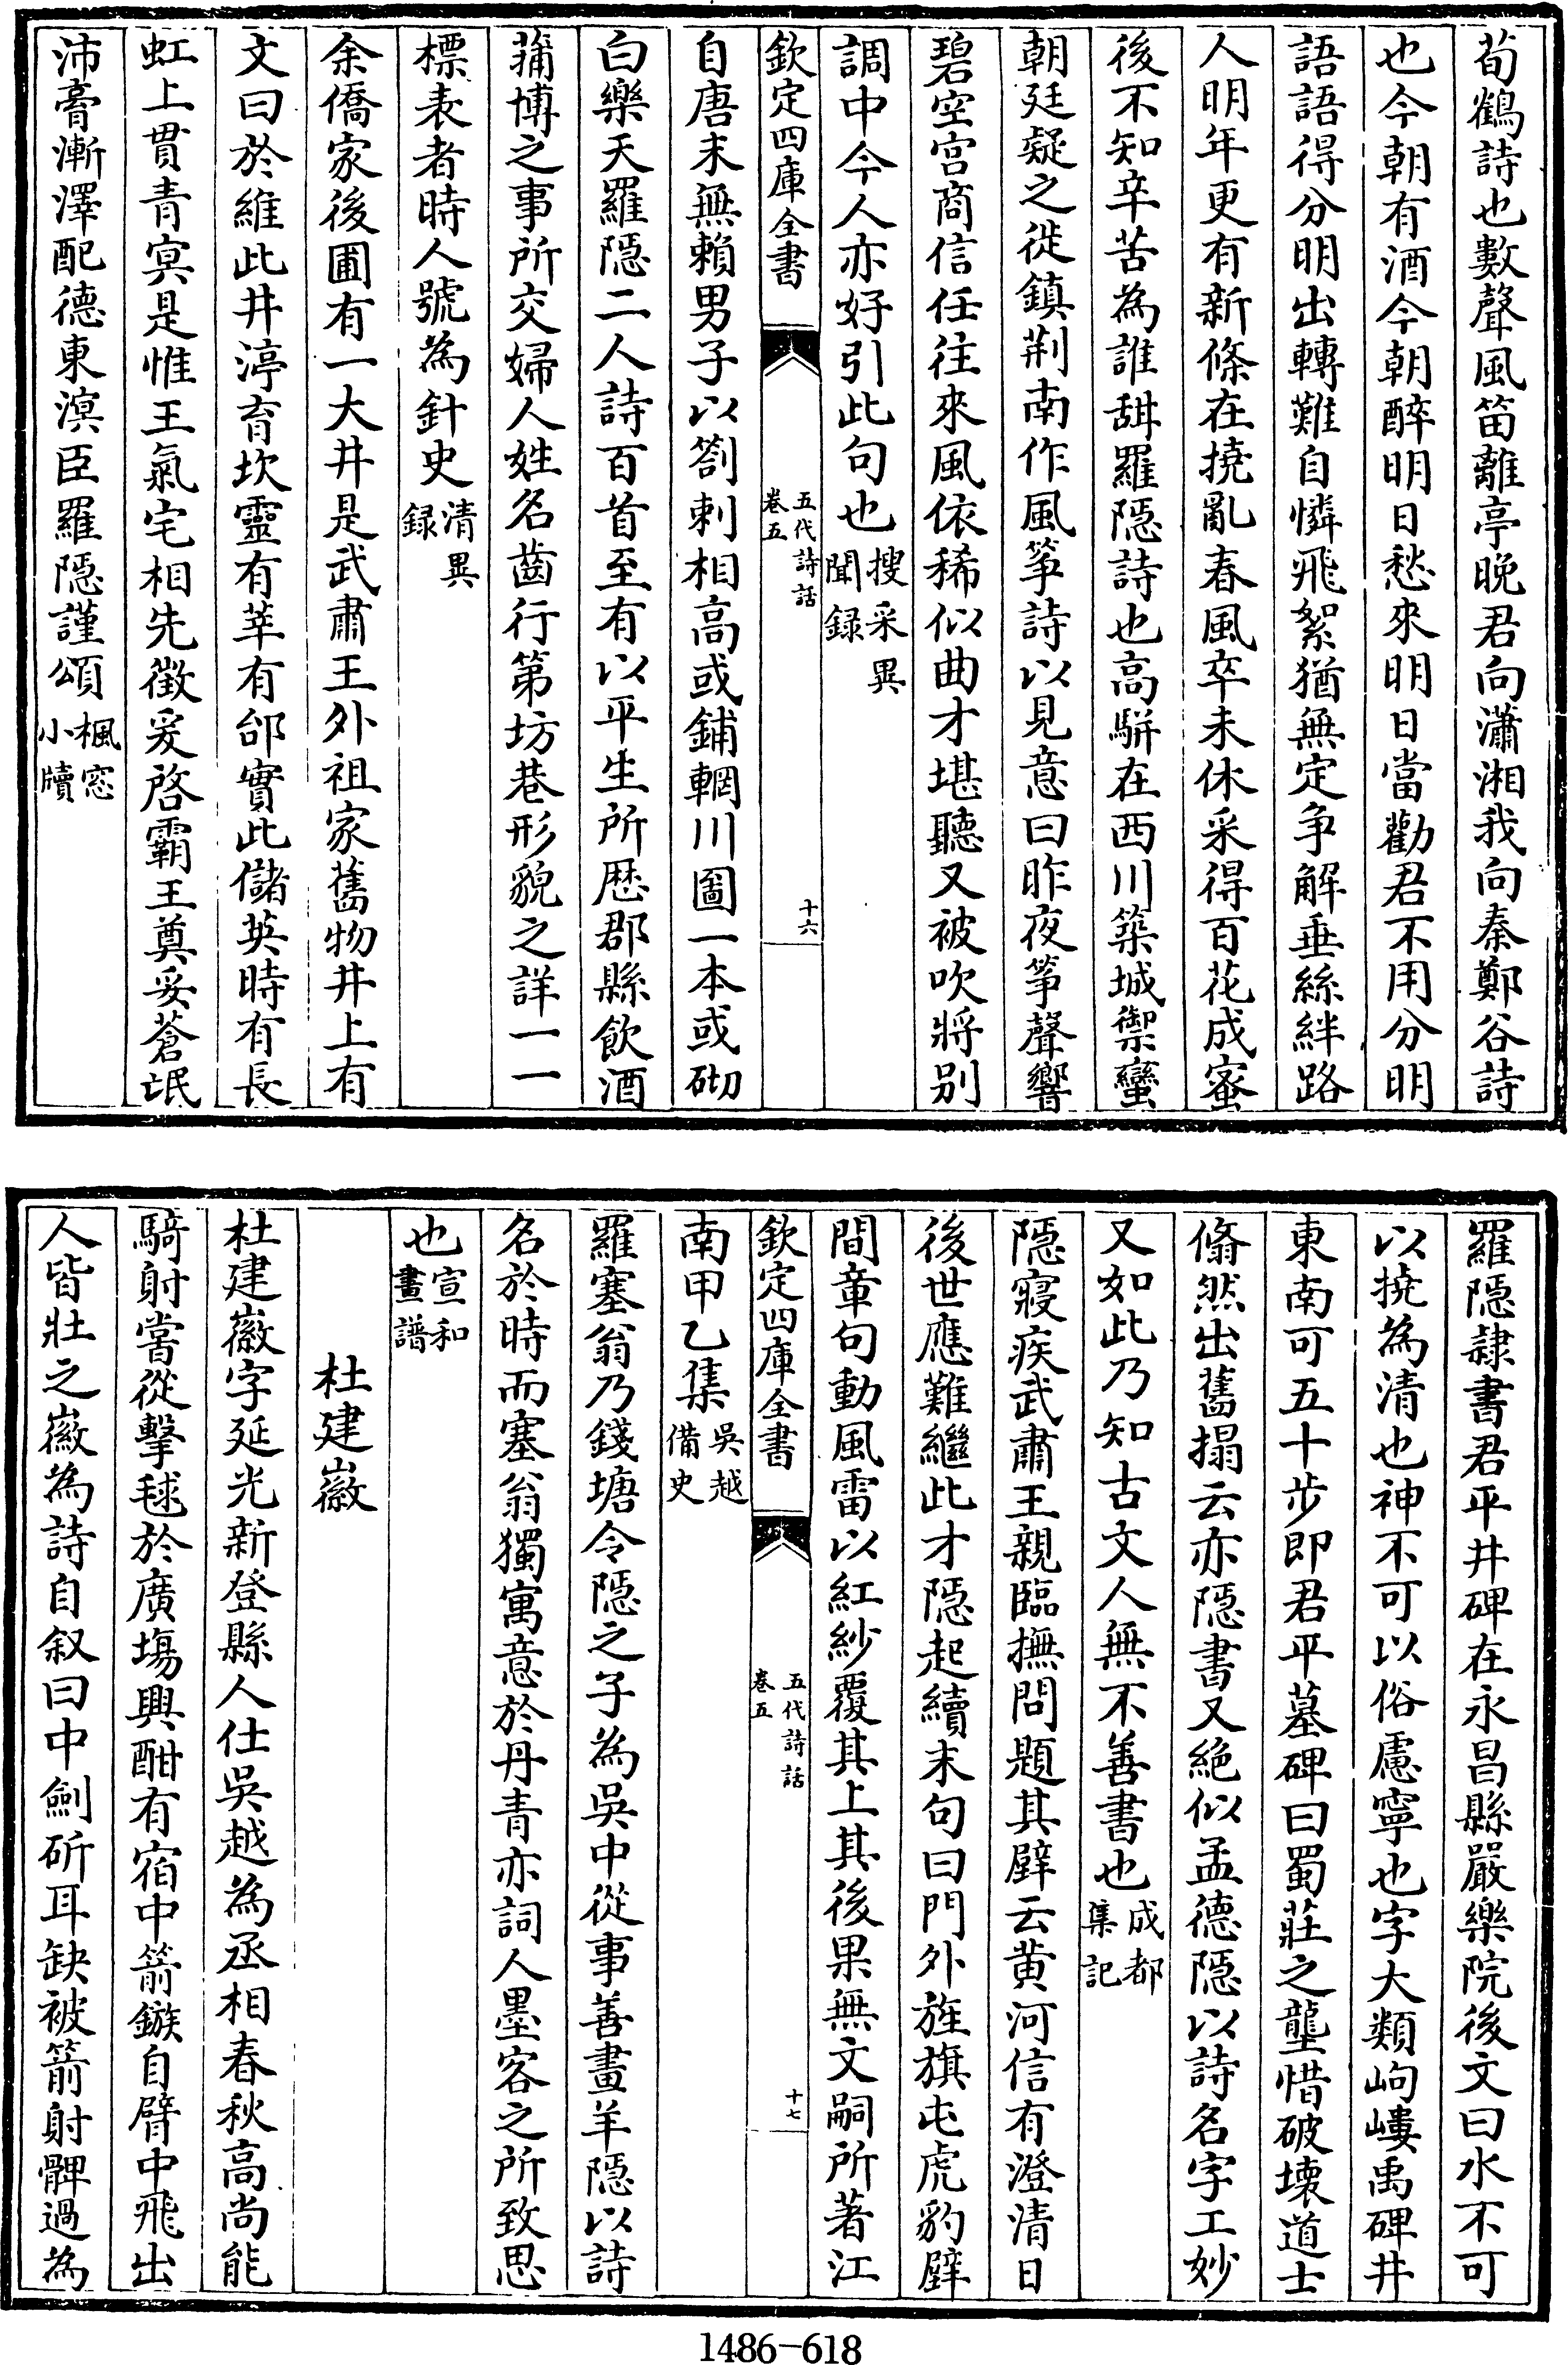 荀鶴詩也數聲風笛離亭晚君向瀟湘我向秦鄭谷詩
也今朝有酒今朝醉明日愁來明日當勸君不用分明
語語得分明出轉難自憐飛絮猶無定争解垂絲絆路
人明年更有新條在撓亂春風卒未休采得百花成蜜
後不知辛苦為誰甜羅隠詩也高駢在西川築城禦蠻
朝廷疑之徙鎮荆南作風筝詩以見意曰昨夜筝聲響
碧空宫商信任往來風依稀似曲才堪聽又被吹將别
調中今人亦好引此句也搜采異聞録
欽定四庫全書
五代詩話
卷五
十六
自唐末無賴男子以劄刺相高或鋪輞川圖一本或砌
白樂天羅隠二人詩百首至有以平生所歴郡縣飲酒
蒱博之事所交婦人姓名齒行第坊巷形貌之詳一一
標表者時人號為針史清異録
余僑家後圃有一大井是武肅王外祖家舊物井上有
文曰於維此井渟育坎靈有莘有邰實此儲英時有長
虹上貫青冥是惟王氣宅相先徵爰啓霸王奠妥蒼氓
沛膏漸澤配德東溟臣羅隠謹頌楓窓小牘
羅隠隷書君平井碑在永昌縣嚴樂院後文曰水不可
以撓為清也神不可以俗慮寧也字大類岣嶁禹碑井
東南可五十步即君平墓碑曰蜀莊之壟惜破壊道士
翛然出舊搨云亦隠書又絶似孟德隠以詩名字工妙
又如此乃知古文人無不善書也成都集記
隠寢疾武肅王親臨撫問題其壁云黄河信有澄清日
後世應難繼此才隠起續末句曰門外旌旗屯虎豹壁
間章句動風雷以紅紗覆其上其後果無文嗣所著江
欽定四庫全書
五代詩話
卷五
十七
南甲乙集吳越備史
羅塞翁乃錢塘令隠之子為吳中從事善畫羊隠以詩
名於時而塞翁獨寓意於丹青亦詞人墨客之所致思
也宣和畫譜
杜建徽
杜建徽字延光新登縣人仕吳越為丞相春秋高尚能
騎射嘗從擊毬於廣場興酣有宿中箭鏃自臂中飛出
人皆壯之徽為詩自叙曰中劍斫耳缺被箭射髀過為
1486-618